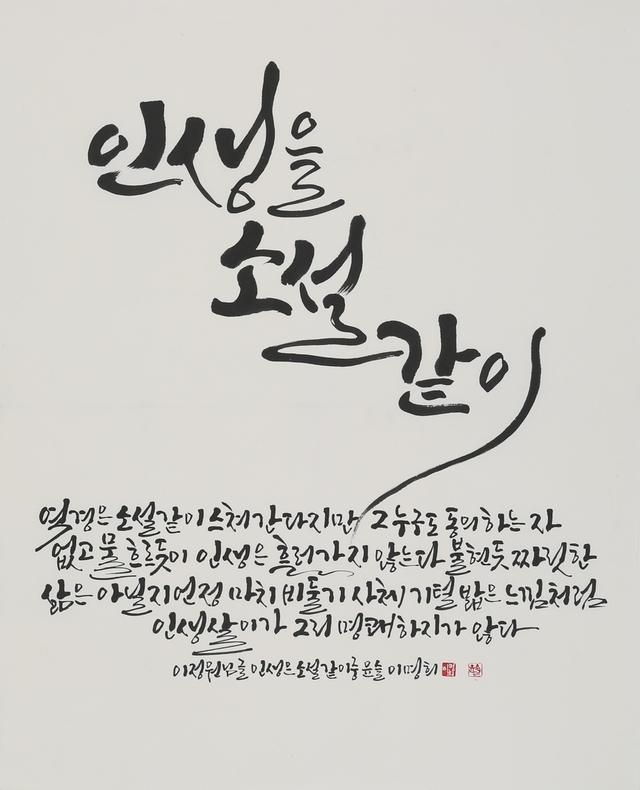 인생을
소설
같이
역경은 소설같이 스쳐간다지만 그누구도 동의하는 자
없고 물 흐르듯이 인생은 흘러가지 않는다 불현듯 짜릿한
삶은 아닐지언정 마치 비둘기 사체 기털 밟은 느낌처럼
인생살이가 그리 명쾌하지가 않다
이정원님글 인생은 소설같이 중 윤슬 이명희